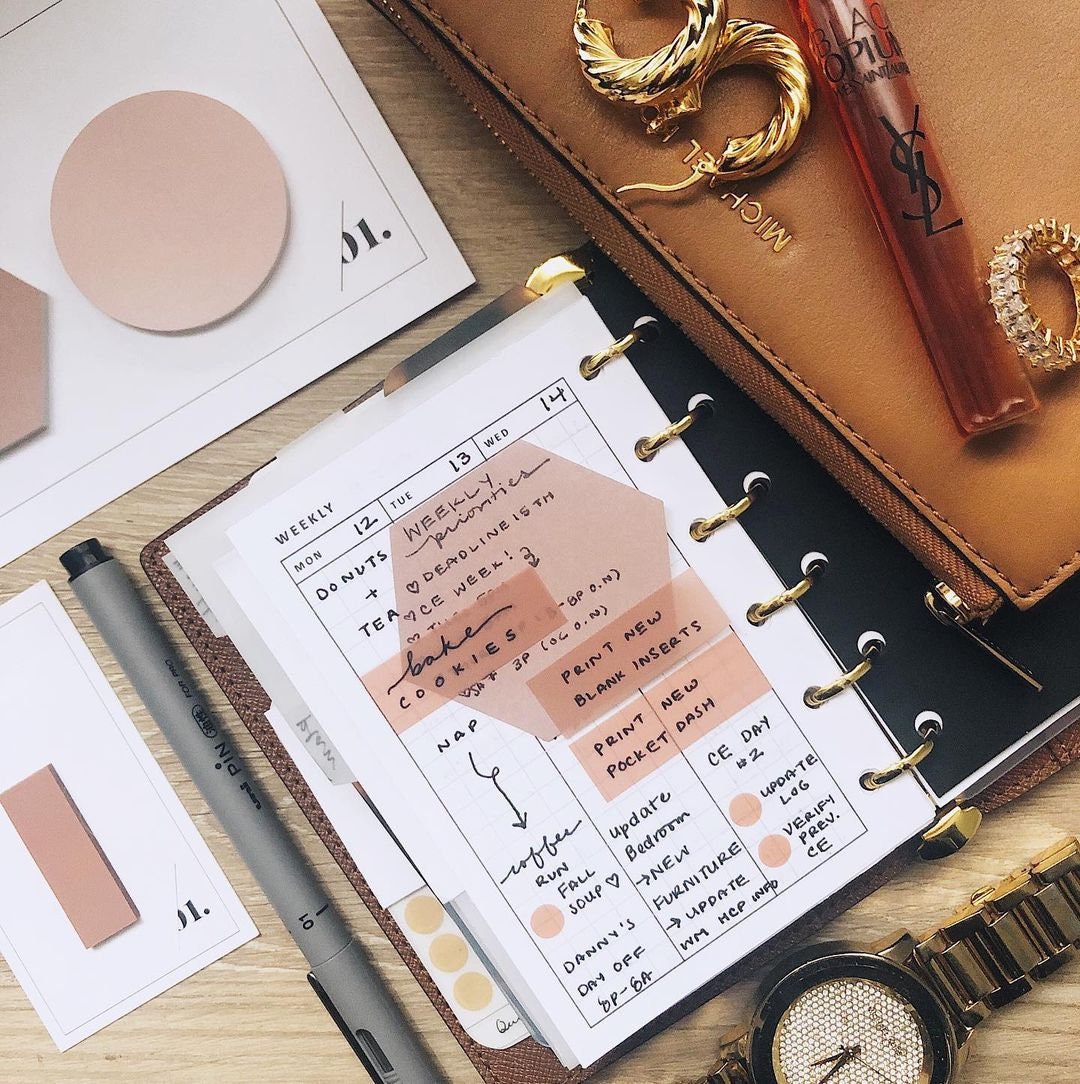 01.
BLACK
OPIUM
YVES SAINT LAURENT
YSL
MICH
EL
WEEKLY
MON 12
TUE 13
WED 14
DONUTS
+
TEA
bake
COOKIES
NAP
coffee
RUN
FALL
SOUP ♡
DANNY'S
DAY OFF
8P-8A
WEEKLY
priorities
♡ DEADLINE 15TH
♡ CE WEEK!
-8P O.N)
3P (OG O.N)
PRINT NEW
BLANK INSERTS
PRINT NEW
POCKET DASH
update
Bedroom
→ NEW
FURNITURE
→ UPDATE
WM HCP INFO
CE DAY
#2
UPDATE
LOG
VERIFY
PREV.
CE
uni PiN
FOR PRO
01
01.